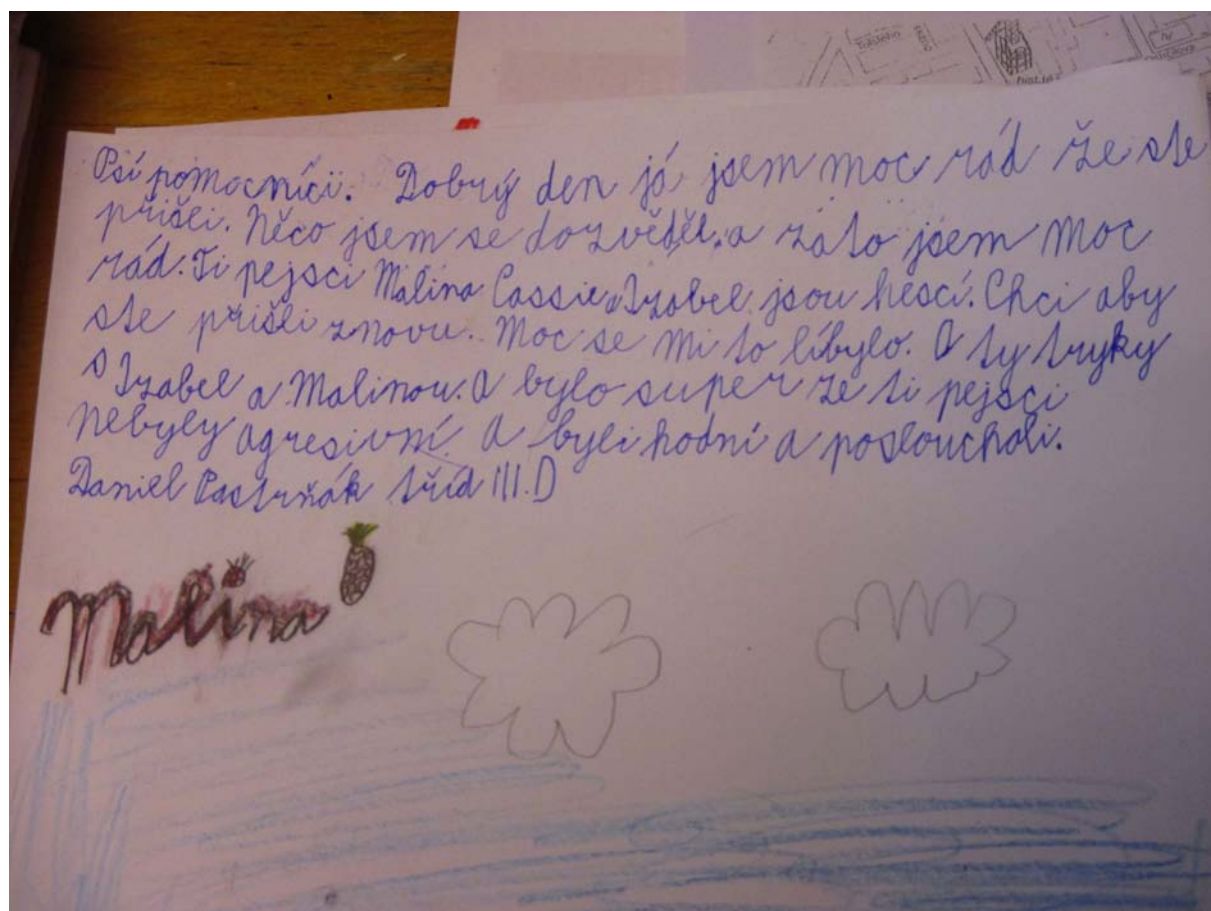 Psí pomocníci. Dobrý den já jsem moc rád že ste
přišli. Něco jsem se dozvěděl, a zato jsem moc
rád. Ti pejsci Malina Cassie a Izabel jsou hescí. Chci aby
ste přišli znovu. Moc se mi to líbylo. A ty tryky
s Izabel a Malinou. A bylo super že ti pejsci
nebyly agresivní. A byli hodní a poslouchali.
Daniel Pastrňák tříd III.D
Malina